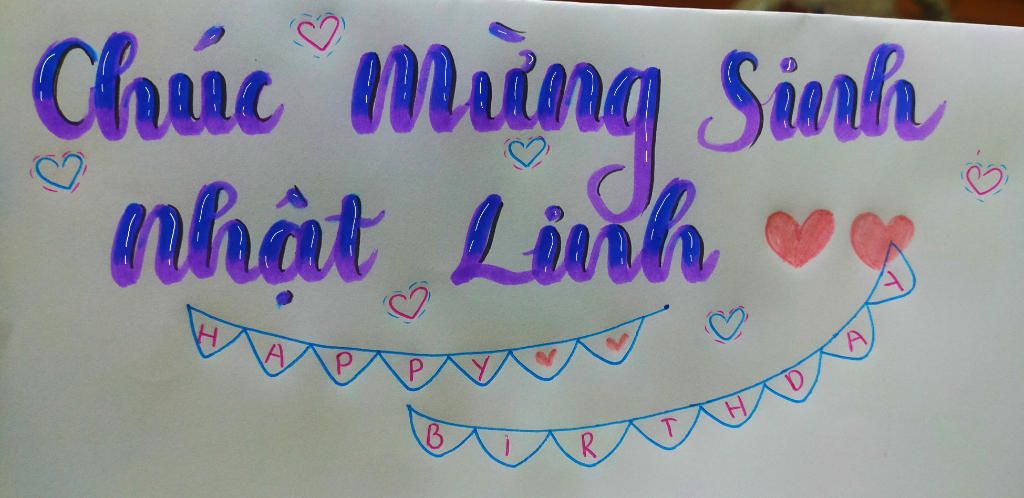 Chúc Mừng Sinh
Nhật Linh
HAPPY
BiRTHDAY